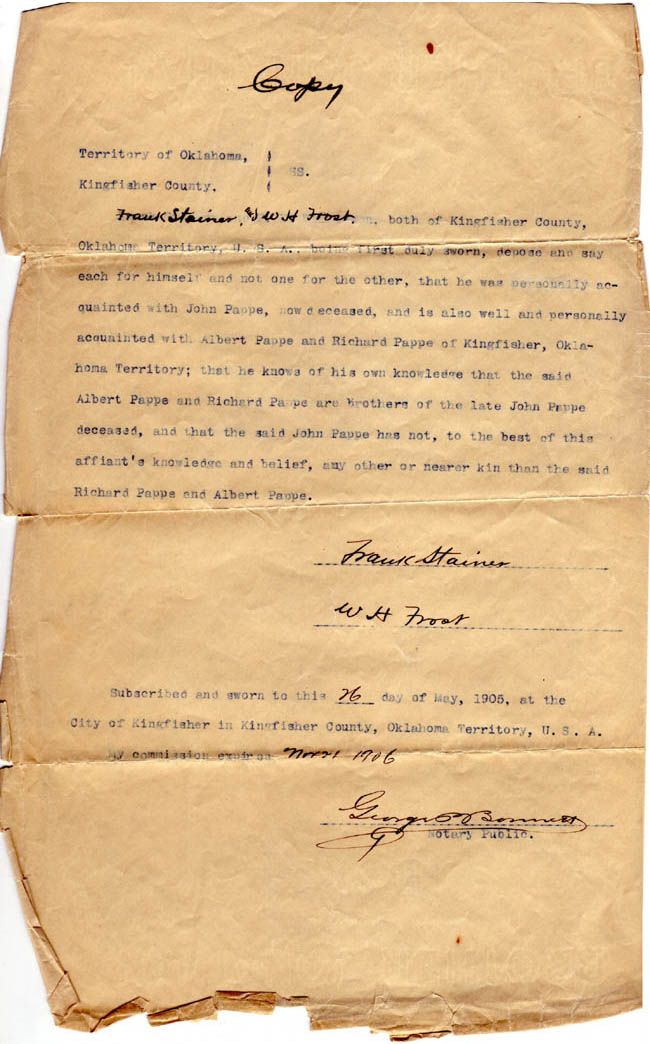 Copy
Territory of Oklahoma,
SS.
Kingfisher County.
Frank Stainer, & W H Frost. n, both of Kingfisher County,
Oklahoma Territory, U. S. A., being first duly sworn, depose and say
each for himself and not one for the other, that he was personally ac-
quainted with John Pappe, now deceased, and is also well and personally
acquainted with Albert Pappe and Richard Pappe of Kingfisher, Okla-
homa Territory; that he knows of his own knowledge that the said
Albert Pappe and Richard Pappe are brothers of the late John Pappe
deceased, and that the said John Pappe has not, to the best of this
affiant's knowledge and belief, any other or nearer kin than the said
Richard Pappe and Albert Pappe.
Frank Stainer
W H Frost
Subscribed and sworn to this 26 day of May, 1905, at the
City of Kingfisher in Kingfisher County, Oklahoma Territory, U. S. A.
My commission expires 1906
George Bonnett
Notary Public.